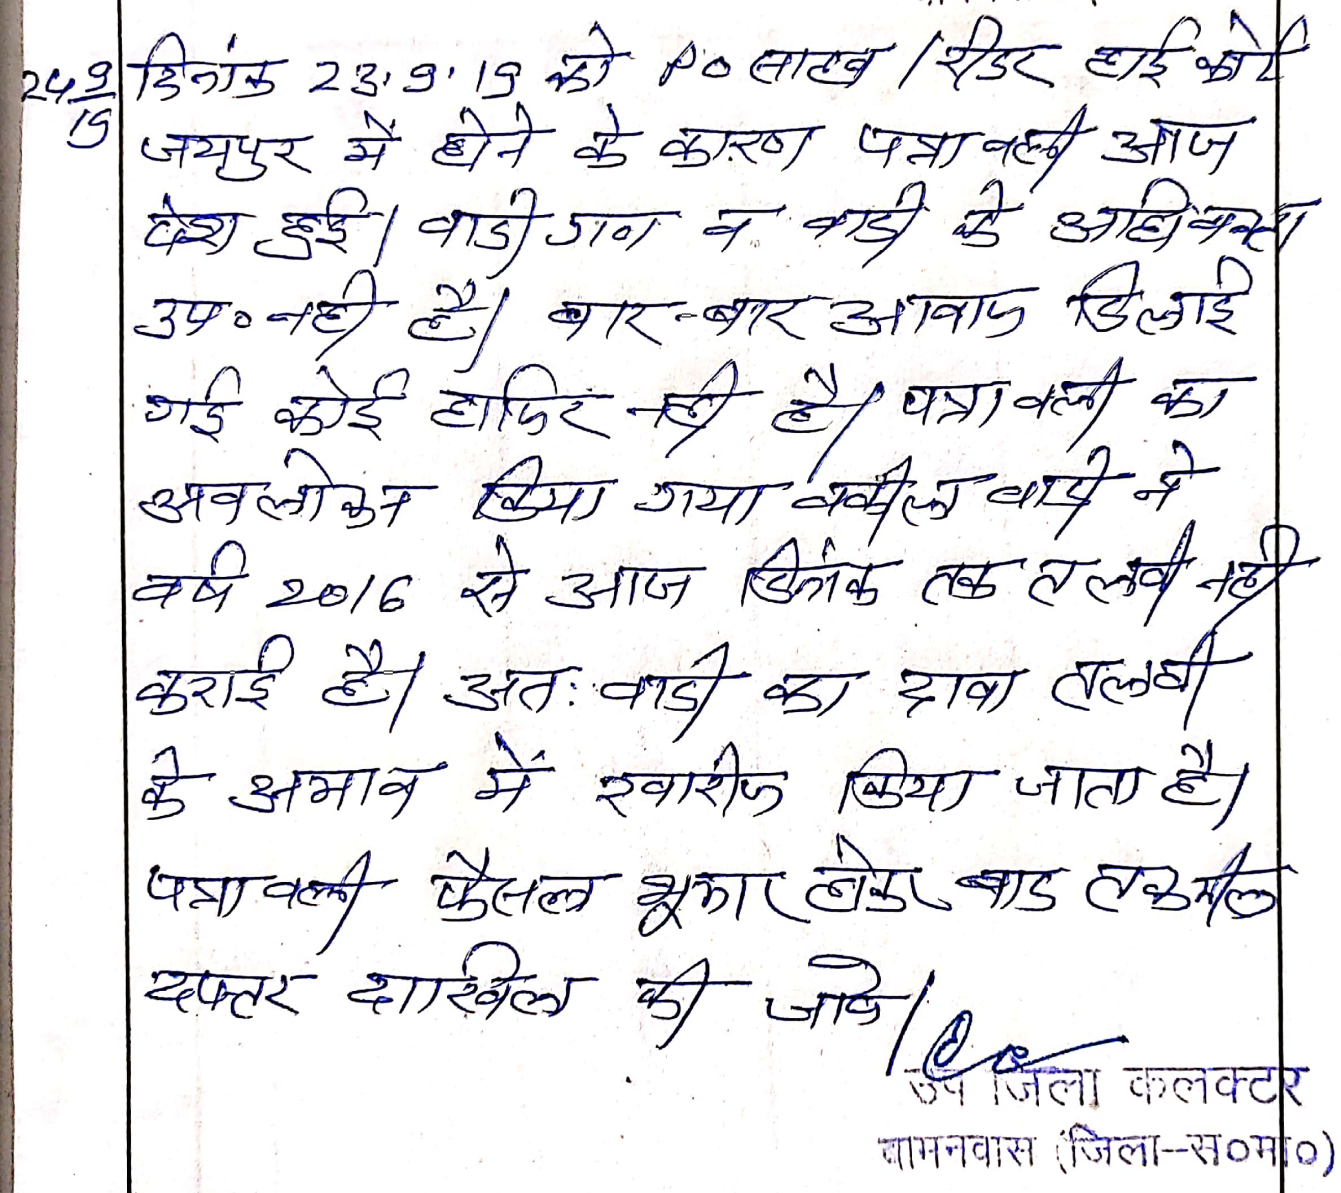 24/9/19
दिनांक 23.9.19 को P० साहब / रीडर हाई कोर्ट
जयपुर में होने के कारण पत्रावली आज
पेश हुई। वादी गण व वादी के अधिवक्ता
उप० नही है। बार-बार आवाज दिलाई
गई कोई हाजिर नही है। पत्रावली का
अवलोकन किया गया वकील वादी ने
वर्ष 2016 से आज दिनांक तक तलवी नही
कराई है। अतः वादी का दावा तलवी
के अभाव में खारीज किया जाता है।
पत्रावली फैसल शुमार होकर बाद तकमील
दफ्तर दाखिल की जावे।
उप जिला कलक्टर
बामनवास (जिला--स०मा०)